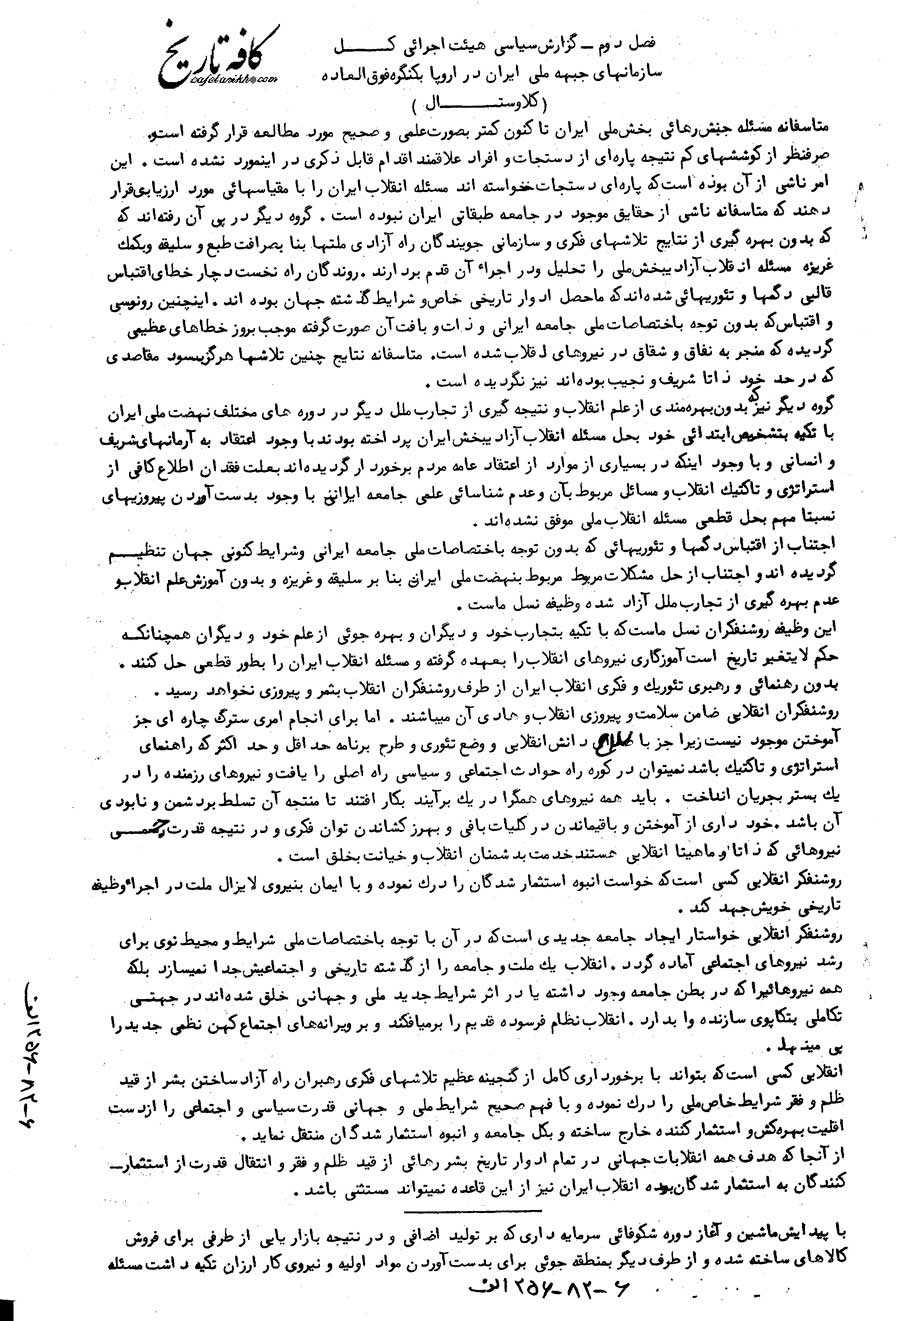 کافه تاریخ
cafetarikh.com
فصل دوم – گزارش سیاسی هیئت اجرائی کل
سازمانهای جبهه ملی ایران در اروپا بکنگره فوق العاده
( کلاوستال )
متاسفانه مسئله جنبش رهائی بخش ملی ایران تا کنون کمتر بصورت علمی و صحیح مورد مطالعه قرار گرفته است و
صرفنظر از کوششهای کم نتیجه پاره‌ای از دستجات و افراد علاقمند اقدام قابل ذکری در اینمورد نشده است . این
امر ناشی از آن بوده است که پاره‌ای دستجات خواسته اند مسئله انقلاب ایران را با مقیاسهائی مورد ارزیابی قرار
دهند که متاسفانه ناشی از حقایق موجود در جامعه طبقاتی ایران نبوده است . گروه دیگر در پی آن رفته‌اند که
که بدون بهره گیری از نتایج تلاشهای فکری و سازمانی جویندگان راه آزادی ملتها بنا بصرافت طبع و سلیقه و بکمك
غریزه مسئله انقلاب آزادیبخش ملی را تحلیل و در اجراء آن قدم بردارند . روندگان راه نخست دچار خطای اقتباس
قالبی دگمها و تئوریهائی شده‌اند که ماحصل ادوار تاریخی خاص و شرایط گذشته جهان بوده اند . اینچنین رونوسی
و اقتباس که بدون توجه باختصاصات ملی جامعه ایرانی و ذات و بافت آن صورت گرفته موجب بروز خطاهای عظیمی
گردیده که منجر به نفاق و شقاق در نیروهای انقلاب شده است . متاسفانه نتایج چنین تلاشها هرگز بسود مقاصدی
که در حد خود ذاتا شریف و نجیب بوده‌اند نیز نگردیده است .
گروه دیگر نیز که بدون بهره‌مندی از علم انقلاب و نتیجه گیری از تجارب ملل دیگر در دوره های مختلف نهضت ملی ایران
با تکیه بتشخیص ابتدائی خود بحل مسئله انقلاب آزادیبخش ایران پرداخته بودند با وجود اعتقاد به آرمانهای شریف
و انسانی و با وجود اینکه در بسیاری از موارد از اعتقاد عامه مردم برخوردار گردیده‌اند بعلت فقدان اطلاع کافی از
استراتژی و تاکتیك انقلاب و مسائل مربوط بآن و عدم شناسائی علمی جامعه ایرانی با وجود بدست آوردن پیروزیهای
نسبتا مهم بحل قطعی مسئله انقلاب ملی موفق نشده‌اند .
اجتناب از اقتباس دگمها و تئوریهائی که بدون توجه باختصاصات ملی جامعه ایرانی و شرایط کنونی جهان تنظیم
گردیده اند و اجتناب از حل مشکلات مربوط مربوط بنهضت ملی ایران بنا بر سلیقه و غریزه و بدون آموزش علم انقلاب و
عدم بهره گیری از تجارب ملل آزاد شده وظیفه نسل ماست .
این وظیفه روشنفکران نسل ماست که با تکیه بتجارب خود و دیگران و بهره جوئی از علم خود و دیگران همچنانکه
حکم لایتغیر تاریخ است آموزگاری نیروهای انقلاب را بعهده گرفته و مسئله انقلاب ایران را بطور قطعی حل کنند .
بدون رهنمائی و رهبری تئوریك و فکری انقلاب ایران از طرف روشنفکران انقلاب بثمر و پیروزی نخواهد رسید .
روشنفکران انقلابی ضامن سلامت و پیروزی انقلاب و هادی آن میباشند . اما برای انجام امری سترگ چاره ای جز
آموختن موجود نیست زیرا جز با سلاح دانش انقلابی و وضع تئوری و طرح برنامه حداقل و حد اکثر که راهنمای
استراتژی و تاکتیك باشد نمیتوان در کوره راه حوادث اجتماعی و سیاسی راه اصلی را یافت و نیروهای رزمنده را در
یك بستر بجریان انداخت . باید همه نیروهای همگرا در یك برآیند بکار افتند تا منتجه آن تسلط بر دشمن و نابودی
آن باشد . خود داری از آموختن و باقیماندن در کلیات بافی و بهرز کشاندن توان فکری و در نتیجه قدرت رزمی
نیروهائی که ذاتا و ماهیتا انقلابی هستند خدمت بدشمنان انقلاب و خیانت بخلق است .
روشنفکر انقلابی کسی است که خواست انبوه استثمار شدگان را درك نموده و با ایمان بنیروی لایزال ملت در اجراء وظیفه
تاریخی خویش جهد کند .
روشنفکر انقلابی خواستار ایجاد جامعه جدیدی است که در آن با توجه باختصاصات ملی شرایط و محیط نوی برای
رشد نیروهای اجتماعی آماده گردد . انقلاب یك ملت و جامعه را از گذشته تاریخی و اجتماعیش جدا نمیسازد بلکه
همه نیروهائیرا که در بطن جامعه وجود داشته یا در اثر شرایط جدید ملی و جهانی خلق شده‌اند در جهتی
تکاملی بتکاپوی سازنده وا بدارد . انقلاب نظام فرسوده قدیم را برمیافکند و بر ویرانه‌های اجتماع کهن نظمی جدید را
پی مینهد .
انقلابی کسی است که بتواند با برخورداری کامل از گنجینه عظیم تلاشهای فکری رهبران راه آزاد ساختن بشر از قید
ظلم و فقر شرایط خاص ملی را درك نموده و با فهم صحیح شرایط ملی و جهانی قدرت سیاسی و اجتماعی را از دست
اقلیت بهره‌کش و استثمار کننده خارج ساخته و بکل جامعه و انبوه استثمار شدگان منتقل نماید .
از آنجا که هدف همه انقلابات جهانی در تمام ادوار تاریخ بشر رهائی از قید ظلم و فقر و انتقال قدرت از استثمار–
کنندگان به استثمار شدگان بوده انقلاب ایران نیز از این قاعده نمیتواند مستثنی باشد .
با پیدایش ماشین و آغاز دوره شکوفائی سرمایه داری که بر تولید اضافی و در نتیجه بازار یابی از طرفی برای فروش
کالاهای ساخته شده و از طرف دیگر بمنطقه جوئی برای بدست آوردن مواد اولیه و نیروی کار ارزان تکیه داشت مسئله
۶-۸۲-۲۵۶ الف
۶-۸۲-۲۵۶ الف